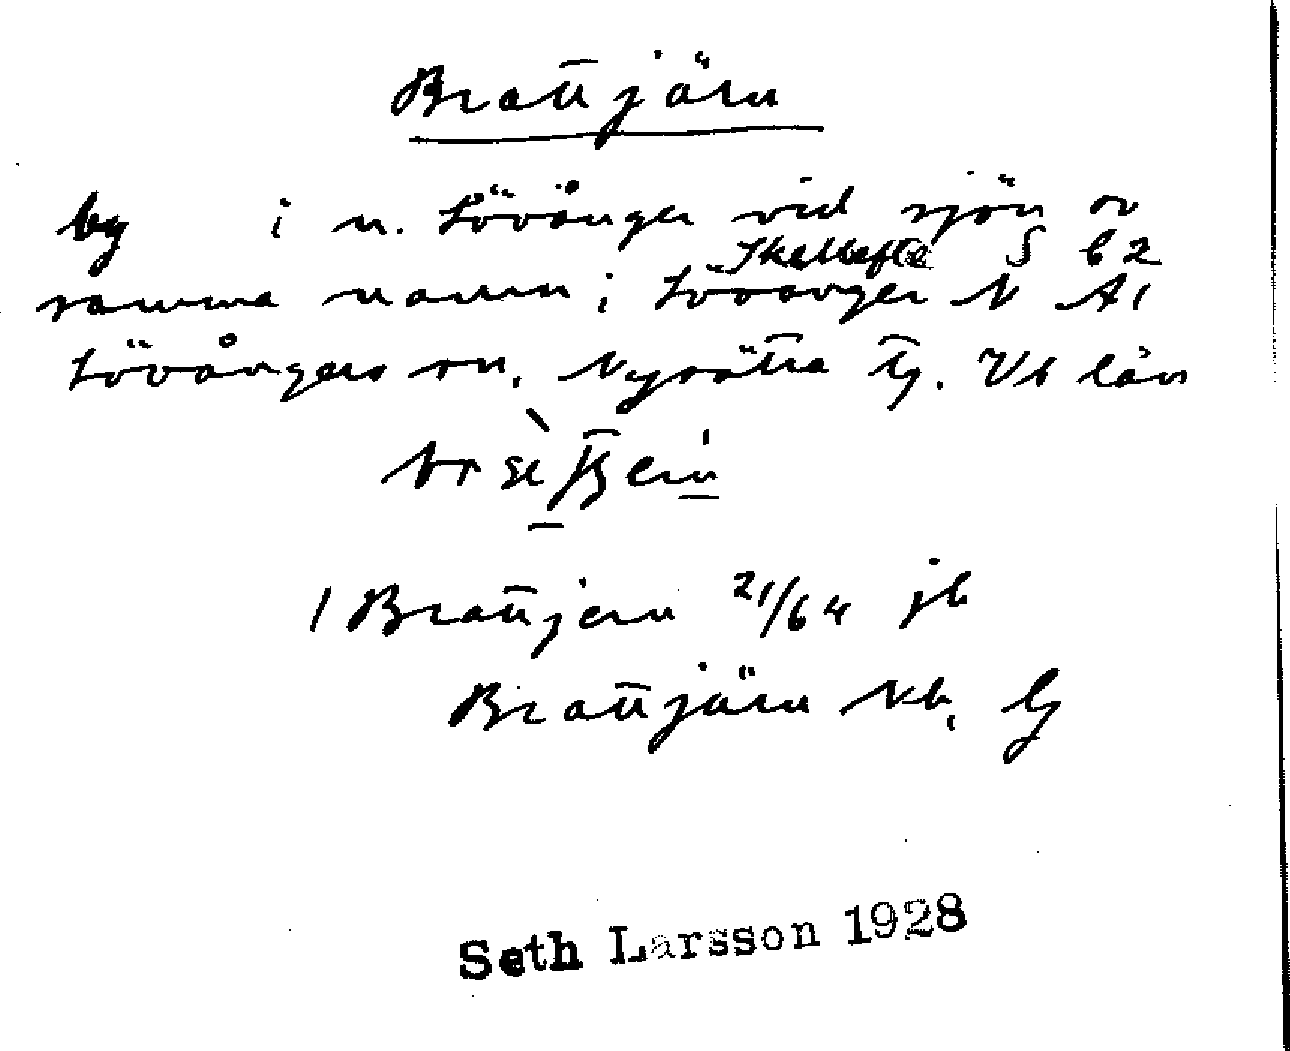 Brattjärn
by i n. Lövånger vid sjön av
Skellefte S b2
samma namn i Lövånger N A1
Lövångers sn. Nysätra tg. Vb län
1 Brattjern 21/64 jb
Brattjärn Kb.
Seth Larsson 1928